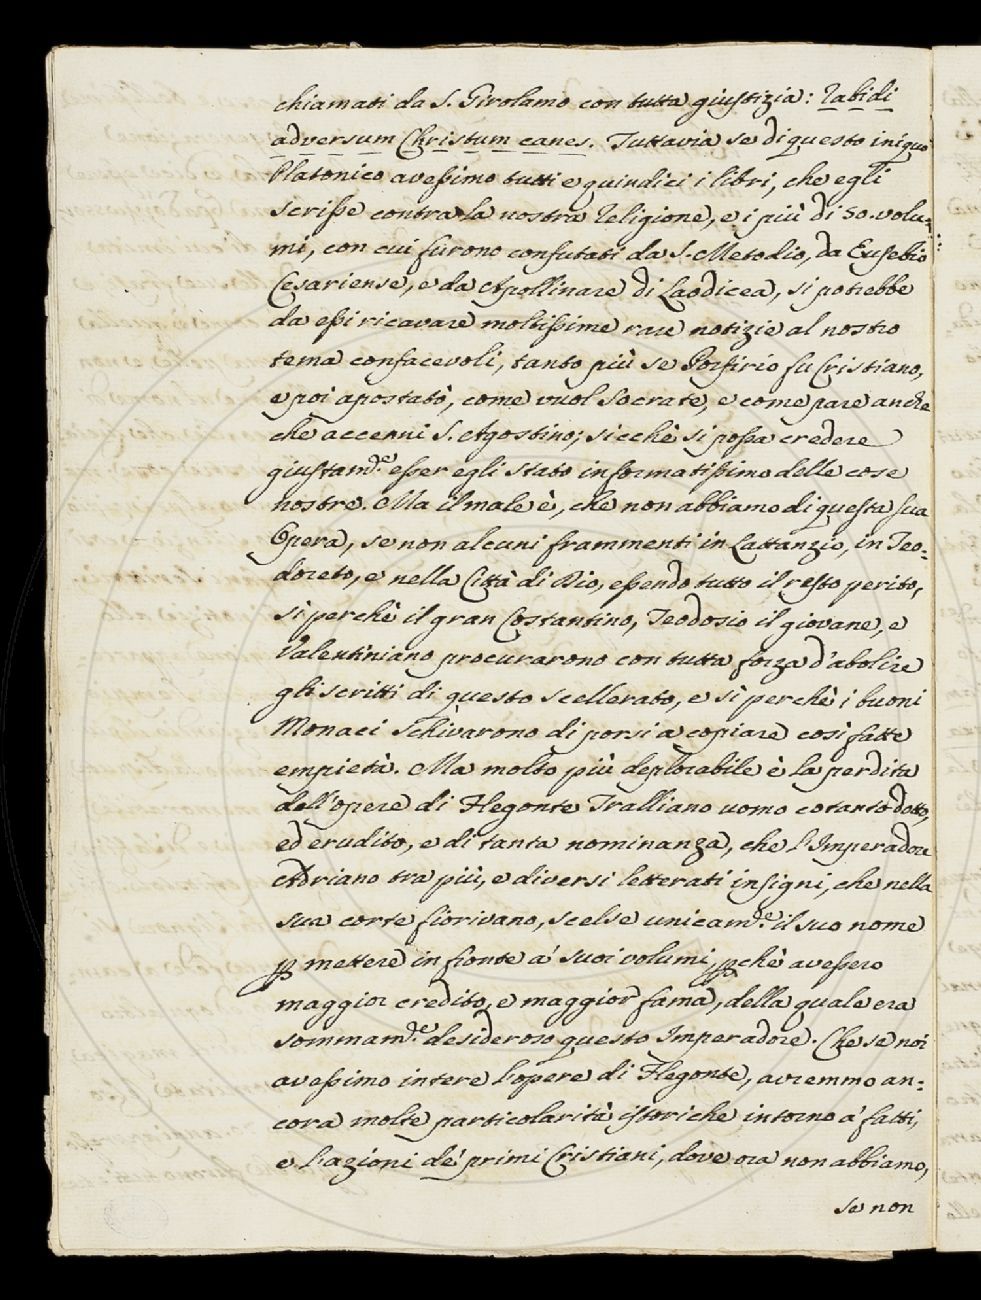 chiamati da S. Girolamo con tutta giustizia: Rabidi
adversum Christum canes. Tuttavia se di questo iniquo
Platonico avessimo tutti e quindici i libri, che egli
scrisse contra la nostra Religione, e i più di 50. volu=
mi, con cui furono confutati da S. Metodio, da Eusebio
Cesariense, e da Apollinare di Laodicea, si potrebbe
da essi ricavare moltissime rare notizie al nostro
tema confacevoli, tanto più se Porfirio fu Cristiano,
e poi apostatò, come vuol Socrate, e come pare anche
che accenni S. Agostino; sicchè si possa credere
giustam.e esser egli stato informatissimo delle cose
nostre. Ma il male è, che non abbiamo di questa sua
Opera, se non alcuni frammenti in Lattanzio, in Teo=
doreto, e nella Città di Dio, essendo tutto il resto perito,
sì perchè il gran Costantino, Teodosio il giovane, e
Valentiniano procurarono con tutta forza d'abolire
gli scritti di questo scellerato, e sì perchè i buoni
Monaci schivarono di porsi a copiare così fatte
empietà. Ma molto più deplorabile è la perdita
dell'opere di Flegonte Tralliano uomo cotanto dotto,
ed erudito, e di tanta nominanza, che l'Imperadore
Adriano tra più, e diversi letterati insigni, che nella
sua corte fiorivano, scelse unicam.e il suo nome
p mettere in fronte a' suoi volumi, pchè avessero
maggior credito, e maggior fama, della quale era
sommam.e desideroso questo Imperadore. Che se noi
avessimo intere l'opere di Flegonte, avremmo an=
cora molte particolarità istoriche intorno a' fatti,
e l'azioni de' primi Cristiani, dove ora non abbiamo,
se non